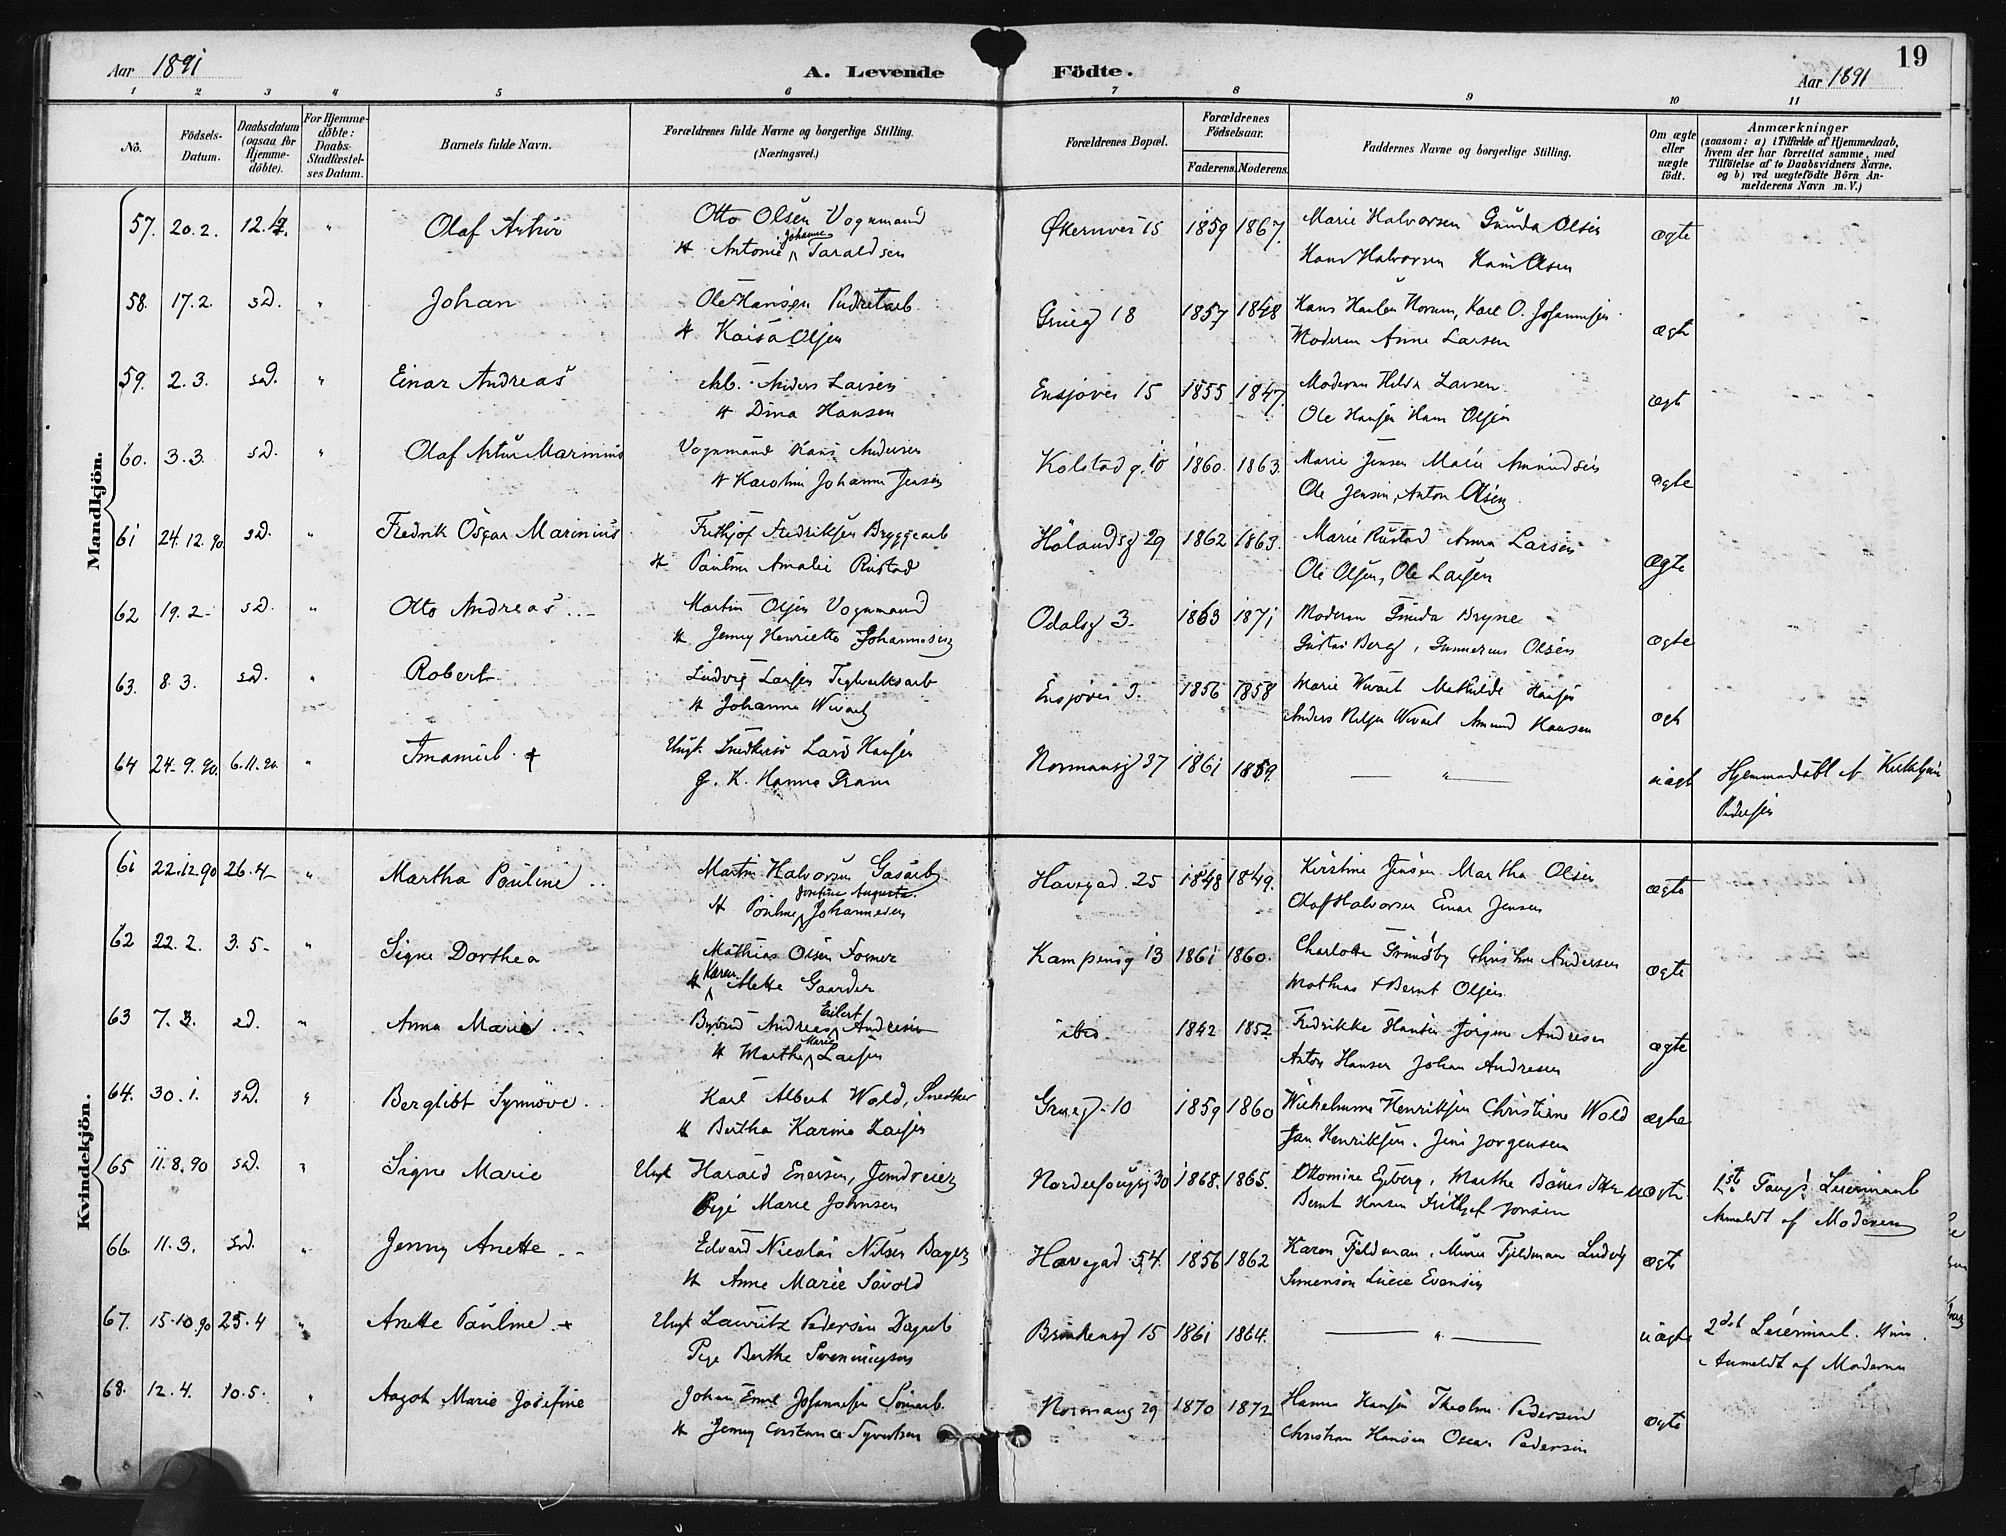 Aar 1891
A. Levende Födte.
19
Aar 1891
1 2 3 4 5 6 7 8 9 10 11
No.
Födsels-Datum.
Daabsdatum (ogsaa for Hjemme-döbte).
For Hjemme-döbte: Daabs-Stadfæstel-ses Datum.
Barnets fulde Navn.
Forældrenes fulde Navne og borgerlige Stilling.
(Næringsvei.)
Forældrenes Bopæl.
Forældrenes Födselsaar.
Faderens. Moderens.
Faddernes Navne og borgerlige Stilling.
Om ægte eller uægte födt.
Anmærkninger
(saasom: a) i Tilfælde af Hjemmedaab, hvem der har forrettet samme, med Tilföielse af to Daabsvidners Navne, og b) ved uægtefödte Börn An-melderens Navn m. V.)
Mandkjön.
57. 20.2. 12.4. " Olaf Artur Otto Olsen Vognmand Økernvei 15 1859 1867. Marie Halvorsen Gunda Olsen ægte
H Antonie Johanne Taraldsen Hans Halvorsen Hans Olsen
58. 17.2. sd. " Johan Ole Hansen Grueg 18 1857 1848 Karl O. Johannesen ægte
H Kaisa Olsen Moderen Anne Larsen
59. 2.3. sd. " Einar Andreas Arb. Anders Larsen Ensjøvei 15 1855 1847. Moderen Hilda Larsen ægt
H Dina Hansen Ole Hansen Hans Olsen
60. 3.3. sd. " Olaf Artur Marinius Vognmand Hans Andersen Kolstadg. 10 1860. 1863. Marie Jensen Marie Amundsen ægte
H Karolin Johanne Jensen Ole Jensen, Anton Olsen
61 24.12.90. sd. " Fredrik Oscar Marinius Frithjof Fredriksen Bryggearb Hölandsg 29 1862 1863. Marie Rustad Anna Larsen ægte
H Pauline Amalie Rustad Ole Olsen, Ole Larsen
62 19.2. sd. " Otto Andreas Martin Olsen Vognmand Odalsg 3. 1863 1871 Moderen Gunda Bryne ægte
H Jenny Henriette Johannesen Gustav Berg, Gunnerius Olsen
63. 8.3. sd. " Robert Ludvig Larsen Teglverksarb Ensjøvei 1856 1858 Marie Mathilde Hansen ægt
H Johanne Anders Amund Hansen
64 24.9.90. 6.11.90. " Imanuel + Ungk. Lars Hansen Normansg 37 1861 1859. — " — uægt Hjemmedöbt af
P. K. Hanna Fram Pedersen
Kvindekjön.
61 22.12.90 26.4 " Martha Pauline Martin Halvorsen Gasarb Havegad. 25 1848 1849. Kirstine Jensen Martha Olsen ægte
H Pauline Josefine Augusta Johannesen Olaf Halvorsen Einar Jensen
62 22.2. 3.5 " Signe Dorthea Mathias Olsen Former Kampensg 13 1861 1860. Charlotte Andersen ægte
H Karen Mette Gaarder Mathias & Bernt Olsen
63 7.3. sd. " Anna Marie Andreas Eilert Andresen ibid 1842 1852 Fredrikke Hansen Jörgine Andresen ægte
H Marthe Marie Larsen Anton Hansen Johan Andresen
64. 30.1. sd. " Berglibt Synnöve Karl Albert Wold, Snedker Grueg. 10 1859 1860 Wilhelmine Henriksen Christine Wold ægte
H Bertha Karine Larsen Jan Henriksen. Jens Jorgensen
65 11.8.90 sd. " Signe Marie Ungk Harald Enersen, 30 1868. 1865. Ottomine Egeberg, Marthe uægte 1ste Leiermaal
Pige Marie Johnsen Bernt Hansen Frithjof Jonsen Anmeldt af Moderen
66 11.3. sd. " Jenny Anette Edvard Nicolai Nilsen Bager Havegad 54. 1856 1862 Karen Fjeldman, Fjeldman Ludvig ægte
H Anne Marie Sövold Simensen Evensen
67. 15.10.90 25.4 " Anette Pauline + Ungk Lauritz Pedersen Dagarb 15 1861 1864. — " — uægte 2det Leiermaal.
Pige Berthe Svenningsen Anmeldt af Moderen
68. 12.4. 10.5. " Aagot Marie Josefine Johan Emil Johannesen Normansg 29 1870 1872 Hanna Hansen Pedersen ægte
H Jenny Constance Syvertsen Christian Hansen Oscar Pedersen